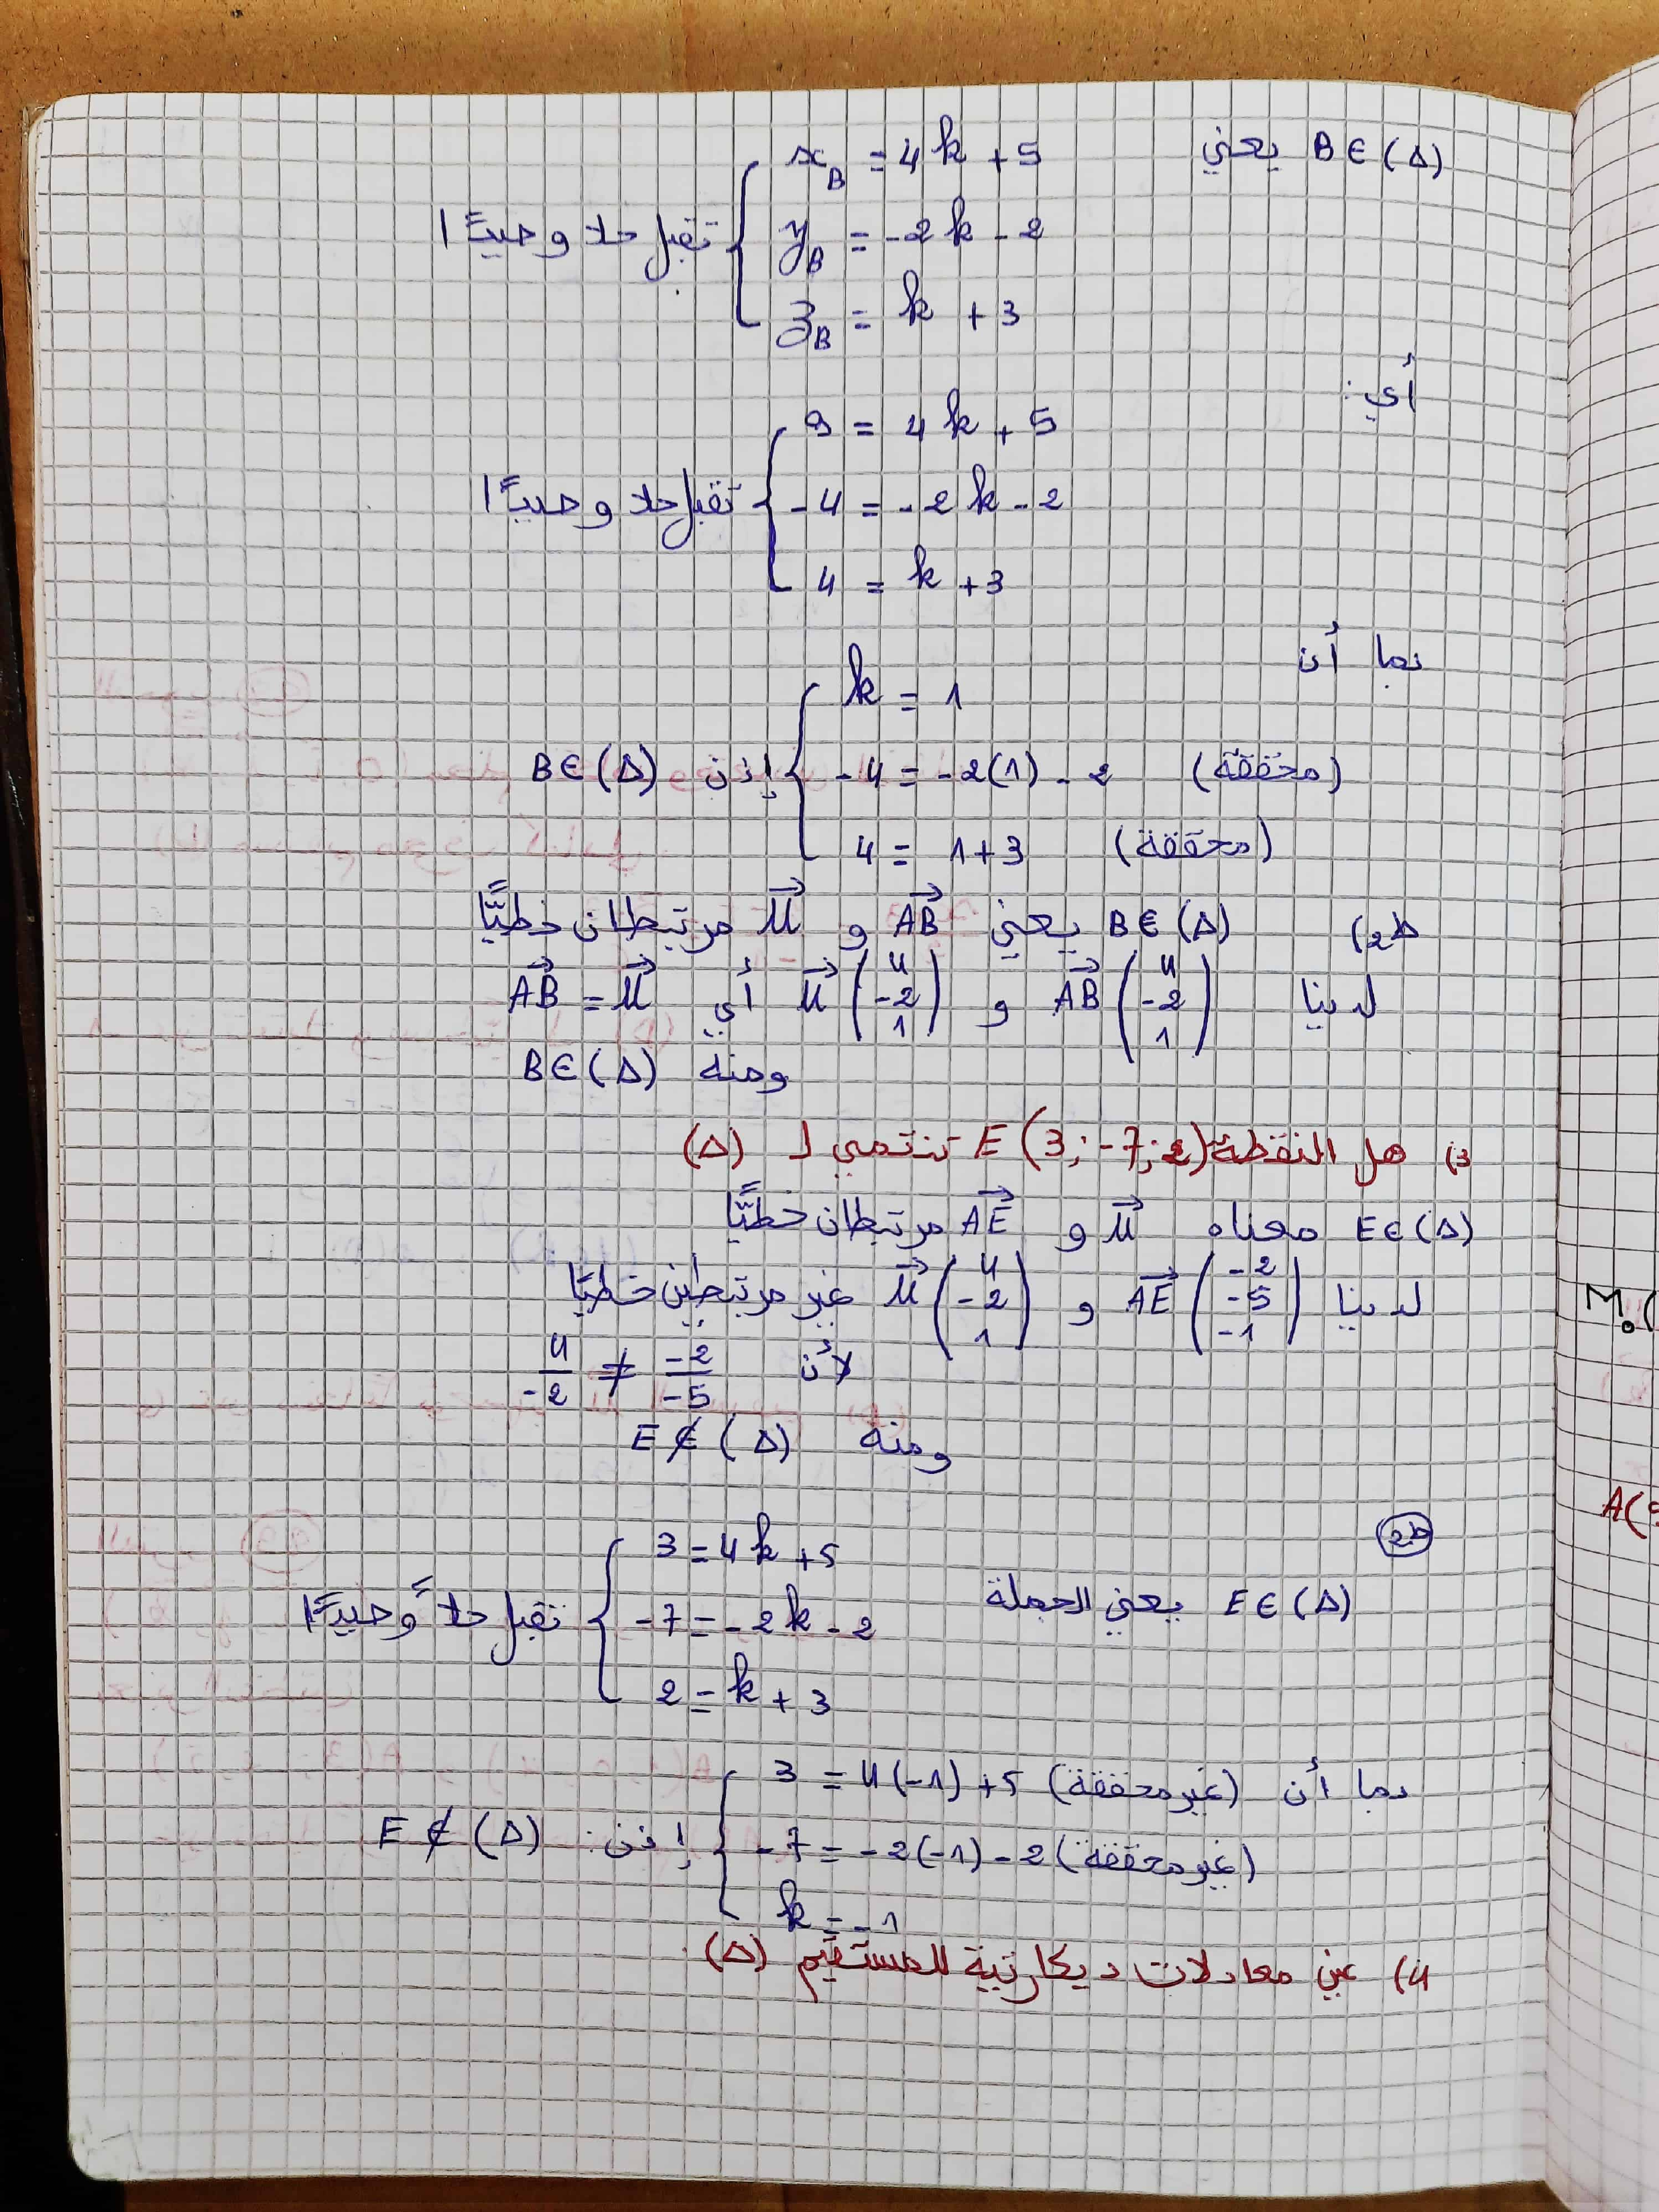 B ∈ (Δ) يعني
x_B = 4k + 5
y_B = -2k - 2
z_B = k + 3
تقبل حلا وحيدًا
أي:
9 = 4k + 5
-4 = -2k - 2
4 = k + 3
تقبل حلا وحيدًا
بما أن
k = 1
-4 = -2(1) - 2 (محققة)
4 = 1 + 3 (محققة)
إذن B ∈ (Δ)
ط2) B ∈ (Δ) يعني \vec{AB} و \vec{u} مرتبطان خطيًّا
لدينا \vec{AB} (4 ; -2 ; 1) و \vec{u} (4 ; -2 ; 1) أي \vec{AB} = \vec{u}
ومنه B ∈ (Δ)
3) هل النقطة E(3; -7; 2) تنتمي لـ (Δ)
E ∈ (Δ) معناه \vec{u} و \vec{AE} مرتبطان خطيًّا
لدينا \vec{AE} (-2 ; -5 ; -1) و \vec{u} (4 ; -2 ; 1) غير مرتبطين خطيًا
لأن -2/-5 ≠ 4/-2
ومنه E ∉ (Δ)
ط2
E ∈ (Δ) يعني الجملة
3 = 4k + 5
-7 = -2k - 2
2 = k + 3
تقبل حلاً وحيدًا
بما أن
3 = 4(-1) + 5 (غير محققة)
-7 = -2(-1) - 2 (غير محققة)
k = -1
إذن: E ∉ (Δ)
4) عين معادلات ديكارتية للمستقيم (Δ).
M₀(
A(5